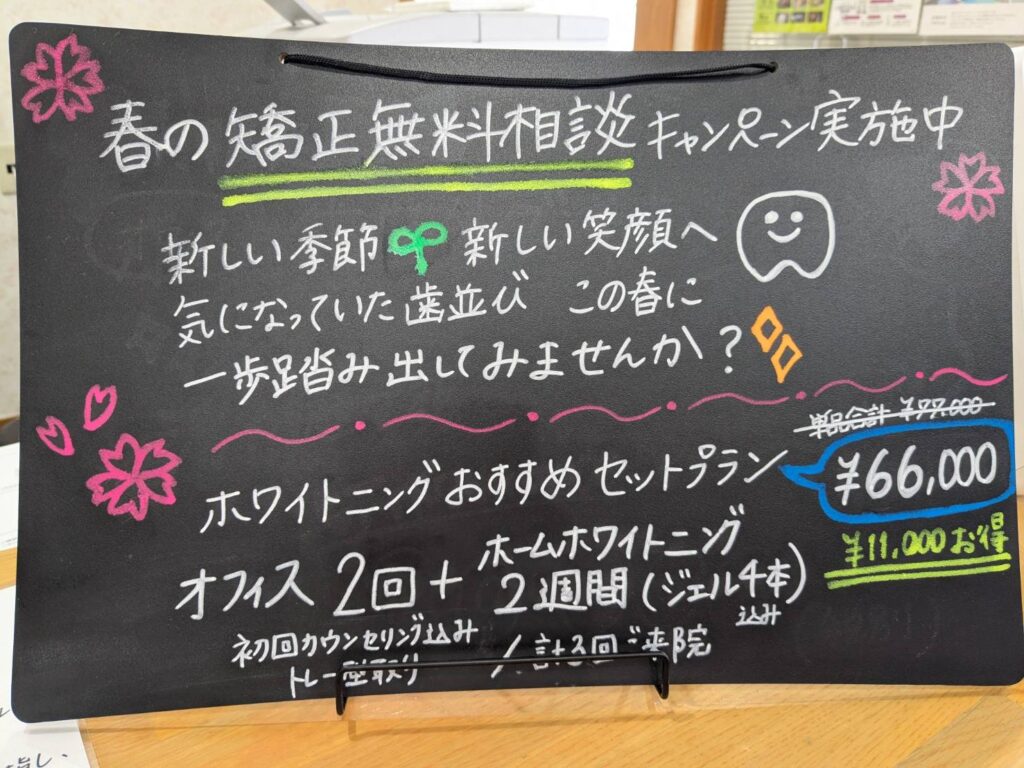 春の矯正無料相談キャンペーン実施中
新しい季節 新しい笑顔へ
気になっていた歯並び この春に
一歩踏み出してみませんか?
単品合計 ¥77.000
ホワイトニングおすすめセットプラン
¥66,000
¥11,000お得
オフィス 2回+ ホームホワイトニング
2週間(ジェル4本)
込み
初回カウンセリング込み
トレー型取り
/計3回ご来院